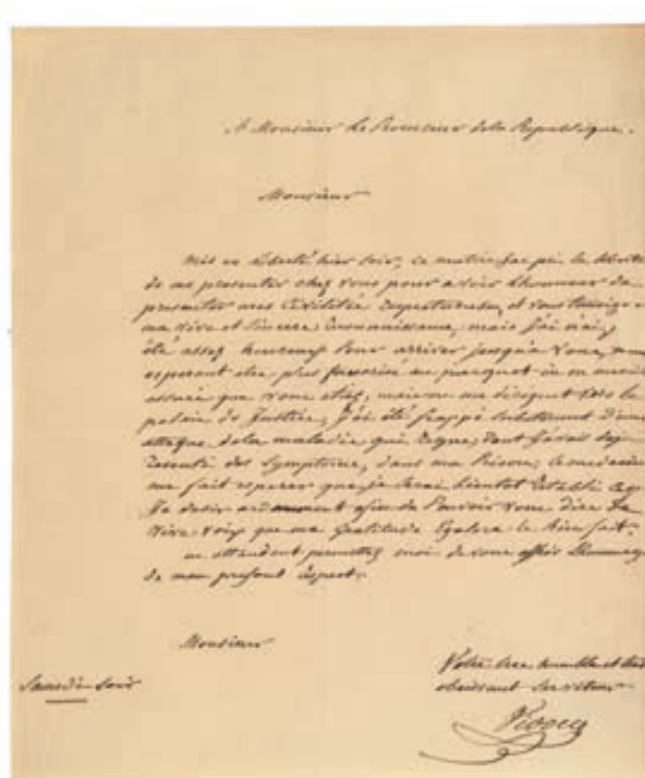 A Monsieur Le Procureur dela Republique.
Monsieur
Mis en Liberté hier soir, ce matin j'ai pris la liberté
de me presenter chez vous pour avoir Lhonneur de
presenter mes Civilitée Respectueuses, et vous temoigner
ma vive et Sincere reconnaissance, mais j'ai
été assez heureux Pour arriver jusqu'a Vous,
esperant etre plus favorisé au parquet ou on
assuré que vous etiez, mais en me dirigent vers le
palais de Justice, J'ai été frappé subitement d'une
attaque dela maladie qui Regne, dont J'avais deja
ressenti des Symptome, dans ma Prison, Le medecin
me fait esperer que je Serai bientot retabli
Je desir ardament afin de Pouvoir vous dire De
Vive Voix que ma Gratitude Egalera le bien fait.
en attendent permettez moi de vous offrir Lhommage
de mon profont respect.
Monsieur
Votre tres humble et tres
obeissant Serviteur
Samedi Soir